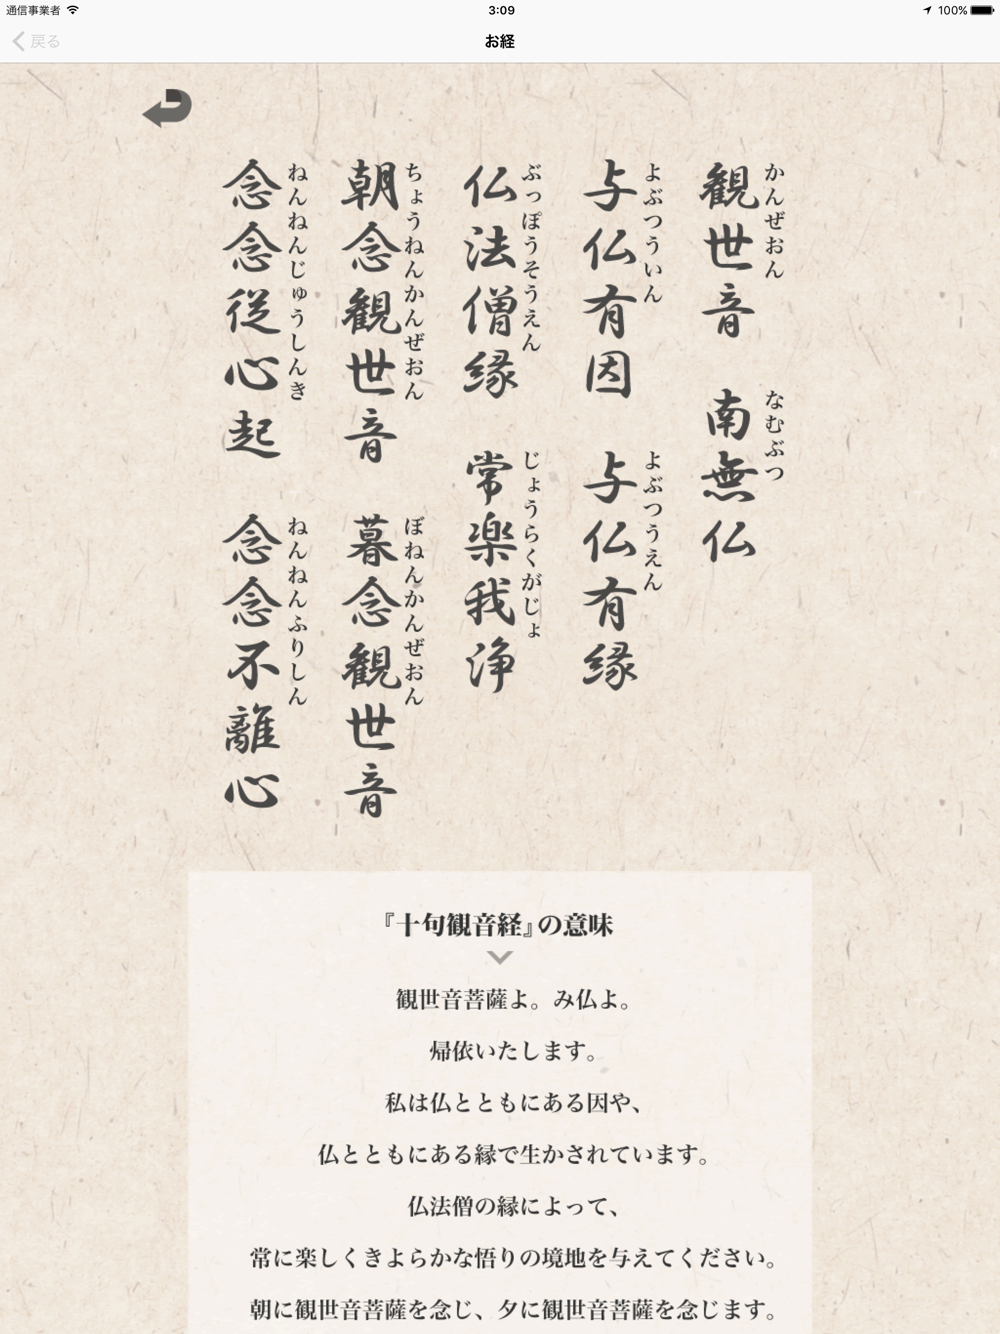 通信事業者 3:09 100%
戻る お経
観世音 南無仏
かんぜおん なむぶつ
与仏有因 与仏有縁
よぶつういん よぶつうえん
仏法僧縁 常楽我浄
ぶっぽうそうえん じょうらくがじょ
朝念観世音 暮念観世音
ちょうねんかんぜおん ぼねんかんぜおん
念念従心起 念念不離心
ねんねんじゅうしんき ねんねんふりしん
『十句観音経』の意味
観世音菩薩よ。み仏よ。
帰依いたします。
私は仏とともにある因や、
仏とともにある縁で生かされています。
仏法僧の縁によって、
常に楽しくきよらかな悟りの境地を与えてください。
朝に観世音菩薩を念じ、夕に観世音菩薩を念じます。